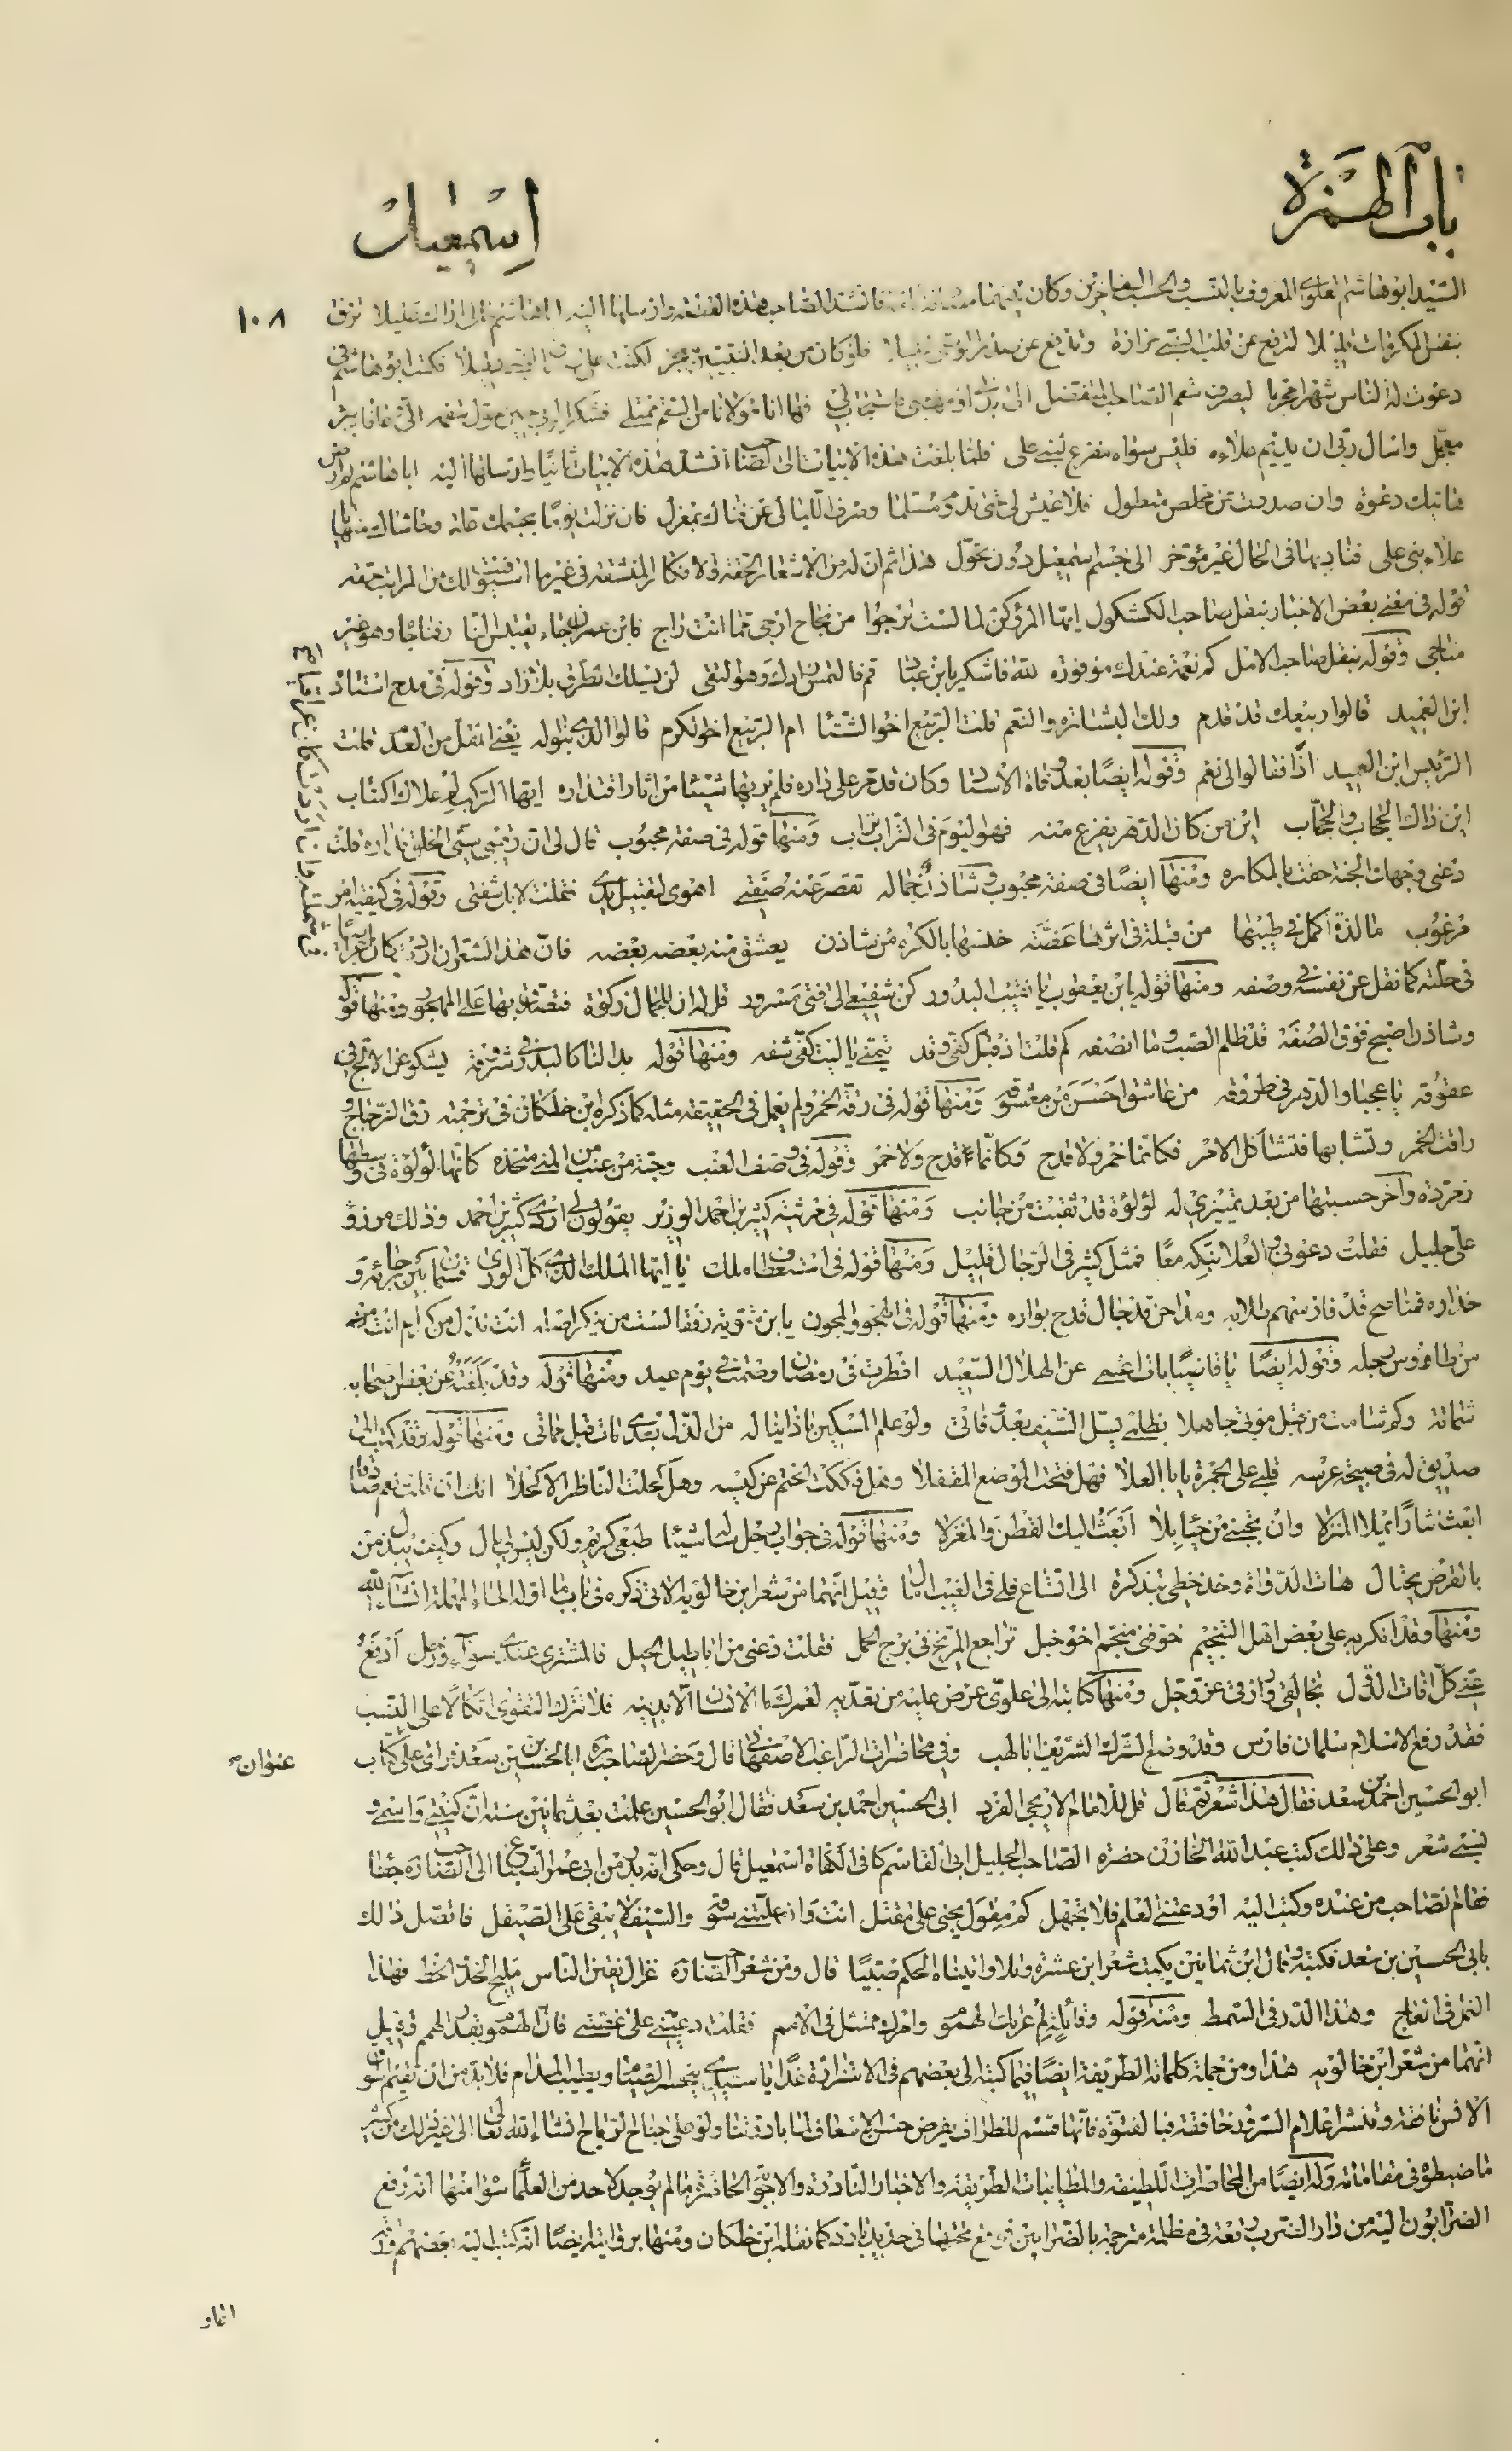 باب الهمزة
اسمعيل
١٠٨
السيد ابو هاشم العلوي المعروف بالنسب والحسب الفاخرين وكان بينهما فانشد الصاحب هذه القطعة وارسلها اليه ابا هاشم مالي اراك عليلا ترفق
بنفس المكرمات قليلا لترفع عن قلب النبي حزازة وتدفع عن صدر الوصي غليلا فلو كان من بعد النبيين معجز لكنت على دليلا فكتب ابو هاشم
دعوت اله الناس شهرا محرما ليصرف سقم الصاحب المتفضل الى بدني او مهجتي فاستجاب لي فها انا مولانا من السقم ممتلي فشكرا لربي حين حول سقمه الي وعافاه ببرء
معجل واسال ربي ان يديم علاءه فليس سواه مفزع لبني علي فلما بلغت هذه الابيات الى الصاحب انشد هذه الابيات ثانيا وارسلها اليه ابا هاشم لم ارض
هاتيك دعوة وان صدرت عن مخلص متطول فلا عيش لي حتى تدوم مسلما وصرف الليالي عن فناك بمعزل فان نزلت يوما بجسمك علة وحاشاك منها يا
علاء بني علي فناد بها في الحال غير مؤخر الى جسم اسمعيل دون تحول هذا ثم ان له من الاشعار الحقة والافكار المنشقة في غير ما اسبقنا لك من المراتب حقه
قوله في معنى بعض الاخبار بنقل صاحب الكشكول ايها المرؤ كن لما لست ترجوا من نجاح ارجى مما انت راج فابن عمران جاء يقتبس النار فناجاه وهو خير
مناجي وقوله بنقل صاحب الامل كم نعمة عندك موفورة لله فاشكر يابن عباد قم فالتمس زادك وهو التقى لن تسلك الطرق بلا زاد وقوله في مدح استاده
ابن العميد قالوا ربيعك قد قدم ولك البشارة والنعم قلت الربيع اخو الشتاء ام الربيع اخو الكرم قالوا الذي بنواله يغني المقل من العدم قلت
الرئيس ابن العميد اذا فقالوا لي نعم وقوله ايضا بعد وفاة الاستاد وكان قد مر على داره فلم ير بها شيئا من اثار اقتداره ايها الركب لم علاك اكتئاب
اين ذاك الحجاب والحجاب اين من كان الدهر يفزع منه فهو اليوم في التراب تراب ومنها قوله في صفة محبوب قال لي ان رقيبي سيئ الخلق فداره قلت
دعني وجهك الجنة حفت بالمكاره ومنها ايضا في صفة محبوب وشاذن جماله تقصر عنه صفتي اهوى لتقبيل يدي فقلت لا بل شفتي وقوله في كيفية امر
مرغوب ما لذة اكمل في طيبها من قبلة في اثرها عضه خلستها بالكره من شاذن يعشق منه بعضه بعضه فان هذا الشعر ان
في حلته كما نقل عن نفسه في وصفه ومنها قوله يابن يعقوب يا نقيب البدور كن شفيعي الى فتى مسرور قل له ان للجمال زكوة فتصدق بها على المهجور ومنها قوله
وشاذن اصبح فوق الصفه قد ظلم الصب وما انصفه كم قلت اذ قبل كفي وقد تيمني يا ليت كفي شفه ومنها قوله بدا لنا كالبدر في شروقه يشكو غزالا لج في
عقوقه يا عجبا والدهر في طروقه من عاشق احسن من معشوقه ومنها قوله في رقة الخمر ولم يعمل في الحقيقة مثله كما ذكره ابن خلكان في ترجمته رق الزجاج و
راقت الخمر وتشابها فتشاكل الامر فكانما خمر ولا قدح وكانما قدح ولا خمر وقوله في وصف العنب وحبة من عنب من المنى متخذه كانها لؤلؤة في وسطها
زمردة وآخر حسبتها من بعد تمييزي له لؤلؤة قد ثقبت من جانب ومنها قوله في مرثية كثير بن احمد الوزير يقولون لي اودى كثير بن احمد وذلك مرزؤ
علي جليل فقلت دعوني والعلا نبكه معا فمثل كثير في الرجال قليل ومنها قوله في استعطاف ملك يا ايها الملك الذي كل الورى قسمان بين رجائه و
حذاره فمناصح قد فاز سهم طلابه ومداهن قد جال قدح بواره ومنها قوله في الهجو والمجون يابن متويه رفقا لست من تنكر اصله انت نذل من كرام انت
من طاووس رجله وقوله ايضا يا قاضيا بات اعمى عن الهلال السعيد افطرت في رمضان وصمت في يوم عيد ومنها قوله وقد بلغه عن بعض اصحابه
شماتة وكم شامت من قبل موتي جاهلا بظلمي يسل السيف بعد وفاتي ولو علم المسكين ماذا يناله من الذل بعدي مات قبل مماتي ومنها قوله وقد كتب الى
صديق له في صبيحة عرسه قلبي على الجمرة يابا العلا فهل فتحت الموضع المقفلا وهل فككت الختم عن كيسه وهل كحلت الناظر الاكحلا انك ان قلت نعم صادقا
ابعث نثارا يملا المنزلا وان تجبني من حياء بلا ابعث اليك القطن والمغزلا ومنها قوله في جواب رجل ساله شيئا طبعي كريم ولكن ليس لي مال وكيف يبذل من
بالقرض يحتال هات الدواة وخذ خطي بتذكرة الى اتساع فلي في الغيب امال فقيل انهما من شعر ابن خالويه الاتي ذكره في باب ما اوله الحاء المهملة انشاء الله
ومنها وقد انكر به على بعض اهل التنجيم خوفني منجم اخو خبل تراجع المريخ في برج الحمل فقلت دعني من اباطيل الحيل فالمشتري عندي سواء وزحل ادفع
عني كل افات الدول بخالقي ورازقي عز وجل ومنها كتابته الى علوي عرض عليه من تعديه لعمرك ما الانسان الا بدينه فلا تترك التقوى اتكالا على النسب
فقد رفع الاسلام سلمان فارس وقد وضع الشرك الشريف ابا لهب وفي محاضرات الراغب الاصفهاني قال وحضر الصاحب ره ابا الحسين بن سعد فراى على كتاب
عنوان
ابو الحسين احمد بن سعد فقال هذا شعر ثم قال قل لذا الامام الاريحي الفرد ابي الحسين احمد بن سعد فقال ابو الحسين علمت بعد ثمانين سنة ان كنيتي واسمي و
نسبتي شعر وعلى ذلك كتب عبد الله الخازن حضرة الصاحب الجليل ابي القاسم كافي الكفاة اسمعيل قال وحكى انه
فقام الصاحب من عنده وكتب اليه اودعتني العلم فلا تجهل كم مقول يجني على مقتل انت وان علمتني سوقه والسيف لا يبقى على الصيقل فاتصل ذلك
بابي الحسين بن سعد فكتب وقال ابن ثمانين يكتب شعر ابن عشرة وتلا واتيناه الحكم صبيا قال ومن شعر الصاحب غزال يفتن الناس مليح الخد والخط فهذا
النمل في العاج وهذا الدر في السمط ومنه قوله وقائلة لم عرتك الهموم وامرك ممتثل في الامم فقلت دعيني على غصتي فان الهموم بقدر الهمم وقيل
انهما من شعر ابن خالويه هذا ومن جملة كلماته الطريفة ايضا فيما كتبه الى بعضهم في الاستزارة غدا يا سيدي ينحسر الصيام ويطيب المدام فلا بد من ان نقيم سوق
الانس نافقة وننشر اعلام السرور خافقة فبا لفتوة فانها قسم للظراف يفرض حسن الاسعاف لما بادرتنا ولو على جناح الرياح انشاء الله تعالى الى غير ذلك من كثير
ما ضبطوه في مقاماته وله ايضا من المحاضرات اللطيفة والمطايبات الظريفة والاخبار النادرة والاجوبة الحاضرة ما لم يوجد لاحد من العلماء سواه منها انه رفع
الضرابون اليه من دار الضرب رقعة في مظلمة مترجمة بالضرابين فوقع تحتها في حديد بارد كما نقله ابن خلكان ومنها بروايته ايضا انه كتب اليه بعضهم رقعة
اغار